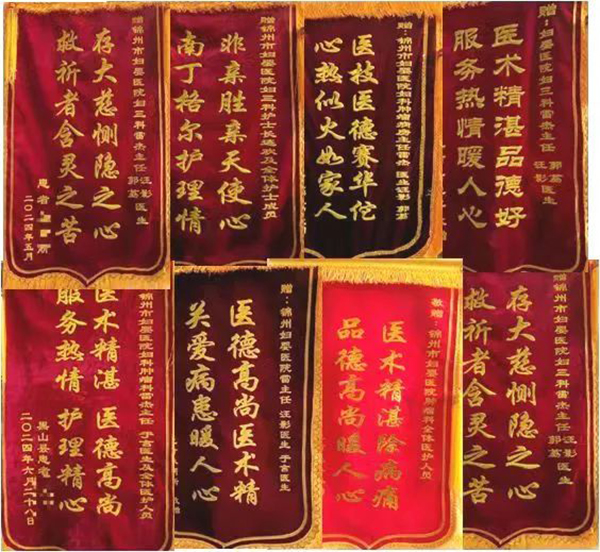 赠锦州市妇婴医院妇三科雷杰主任 汪影 郭荔 医生
存大慈恻隐之心
救祈者含灵之苦
患者
二〇二四年五月
赠锦州市妇婴医院妇三科护士长连及全体护士成员
非亲胜亲天使心
南丁格尔护理情
赠：锦州市妇婴医院妇科肿瘤病房主任雷杰 医生汪影 郭荔
医技医德赛华佗
心热似火如家人
赠：妇婴医院妇三科 郭荔 汪影 医生
医术精湛品德好
服务热情暖人心
锦州市妇婴医院妇科肿瘤科雷杰主任 于言医生及全体医护人员
医术精湛 医德高尚
服务热情 护理精心
黑山县患者
二〇二四年六月二十八日
赠：锦州妇婴医院雷主任 汪影医生 于言医生
医德高尚医术精
关爱病患暖人心
敬赠：锦州市妇婴医院肿瘤科全体医护人员
医术精湛除病痛
品德高尚暖人心
赠锦州市妇婴医院妇三科雷杰主任 汪影 郭荔 医生
存大慈恻隐之心
救祈者含灵之苦